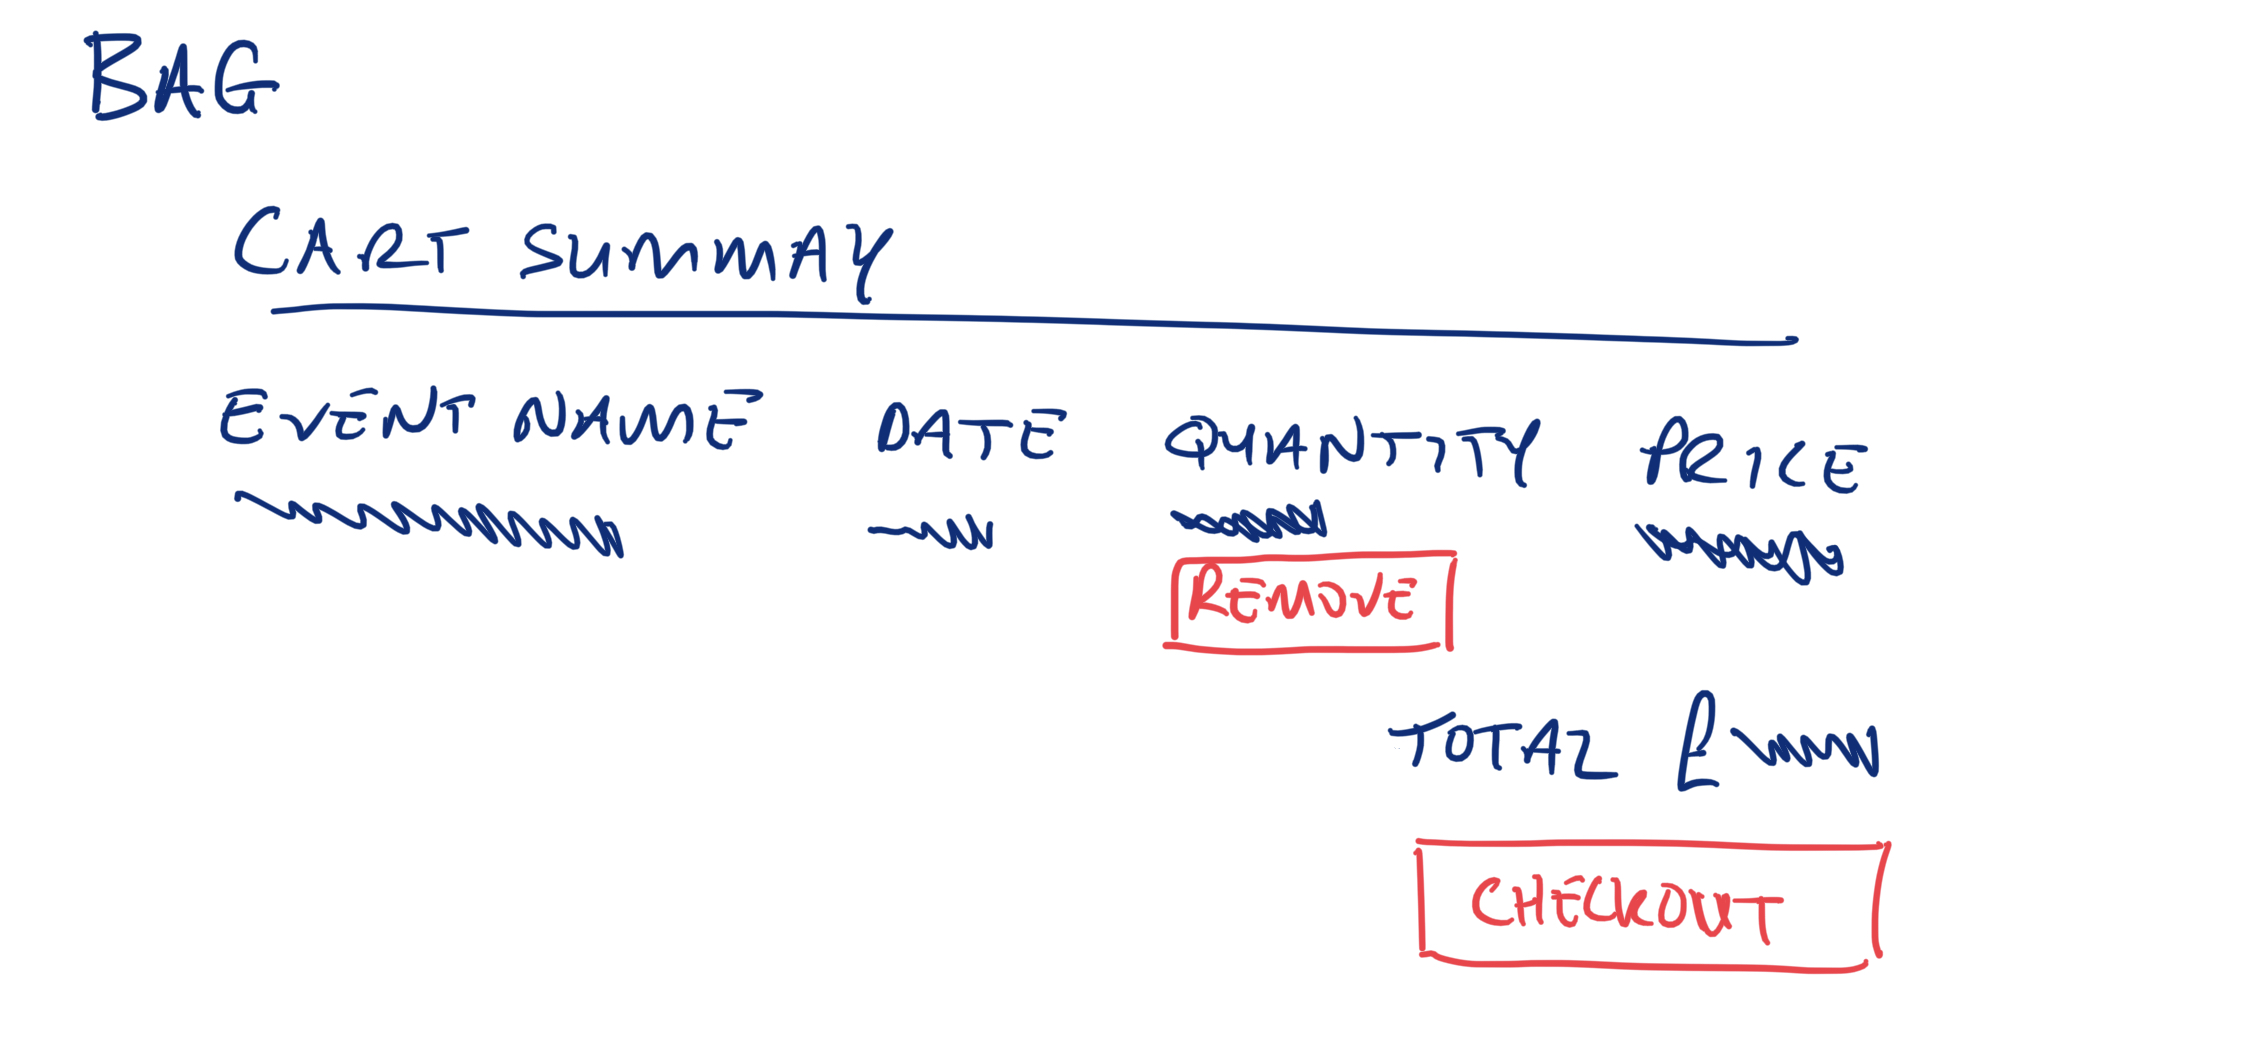 BAG
CART SUMMAY
EVENT NAME DATE QUANTITY PRICE
REMOVE
TOTAL £
CHECKOUT